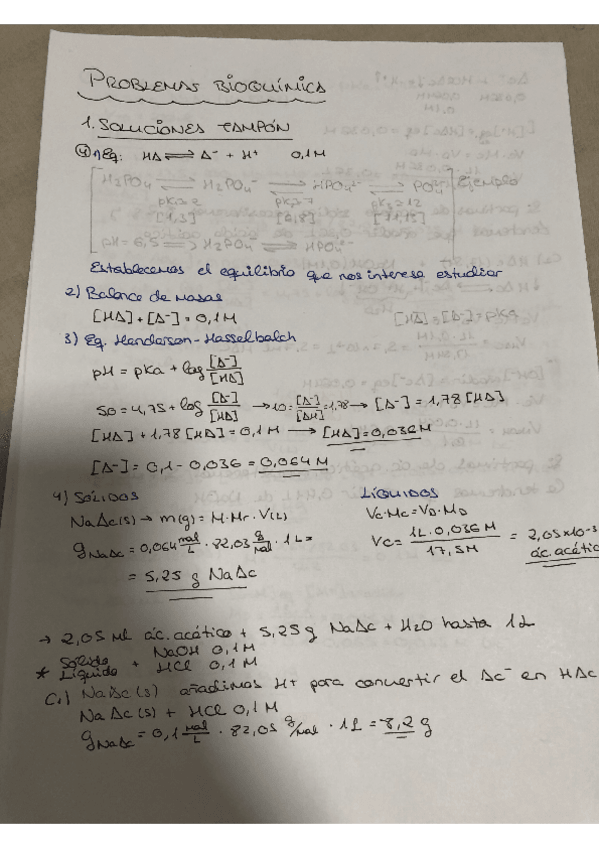 PROBLEMAS BIOQUÍMICA
1. SOLUCIONES TAMPÓN
4) 1) Eq: HA ⇌ A⁻ + H⁺ 0,1M
[H₃PO₄ ⇌ H₂PO₄⁻ ⇌ HPO₄²⁻ ⇌ PO₄³⁻] Ejemplo
pK₁≈2 pK₂≈7 pK₃≈12
pH=6,5 ⟹ H₂PO₄⁻ ⇌ HPO₄²⁻
Establecemos el equilibrio que nos interesa estudiar
2) Balance de masas
[HA]+[A⁻]=0,1M
3) Eq. Henderson-Hasselbalch
pH = pKa + log [A⁻]/[HA]
5,0=4,75+log [A⁻]/[HA] → 10 = [A⁻]/[AH] =1,78 → [A⁻] = 1,78 [HA]
[HA] + 1,78 [HA] = 0,1 M → [HA]=0,036M
[A⁻] = 0,1 - 0,036 = 0,064 M
4) SÓLIDOS LÍQUIDOS
NaAc(s) → m(g)= M·Mr·V(L) Vc·Mc=VD·MD
g NaAc = 0,064 mol/L · 82,03 g/mol · 1L= Vc= 1L·0,036M/17,5M = 2,05x10⁻³
= 5,25 g NaAc ác. acétic
→ 2,05 ml ác. acético + 5,25 g NaAc + H₂O hasta 1L
* Sólido NaOH 0,1M
Líquido + HCl 0,1M
C.) NaAc(s) añadimos H+ para convertir el Ac⁻ en HAc
NaAc(s) + HCl 0,1M
g NaAc = 0,1 mol/L · 82,03 g/mol · 1L = 8,2 g